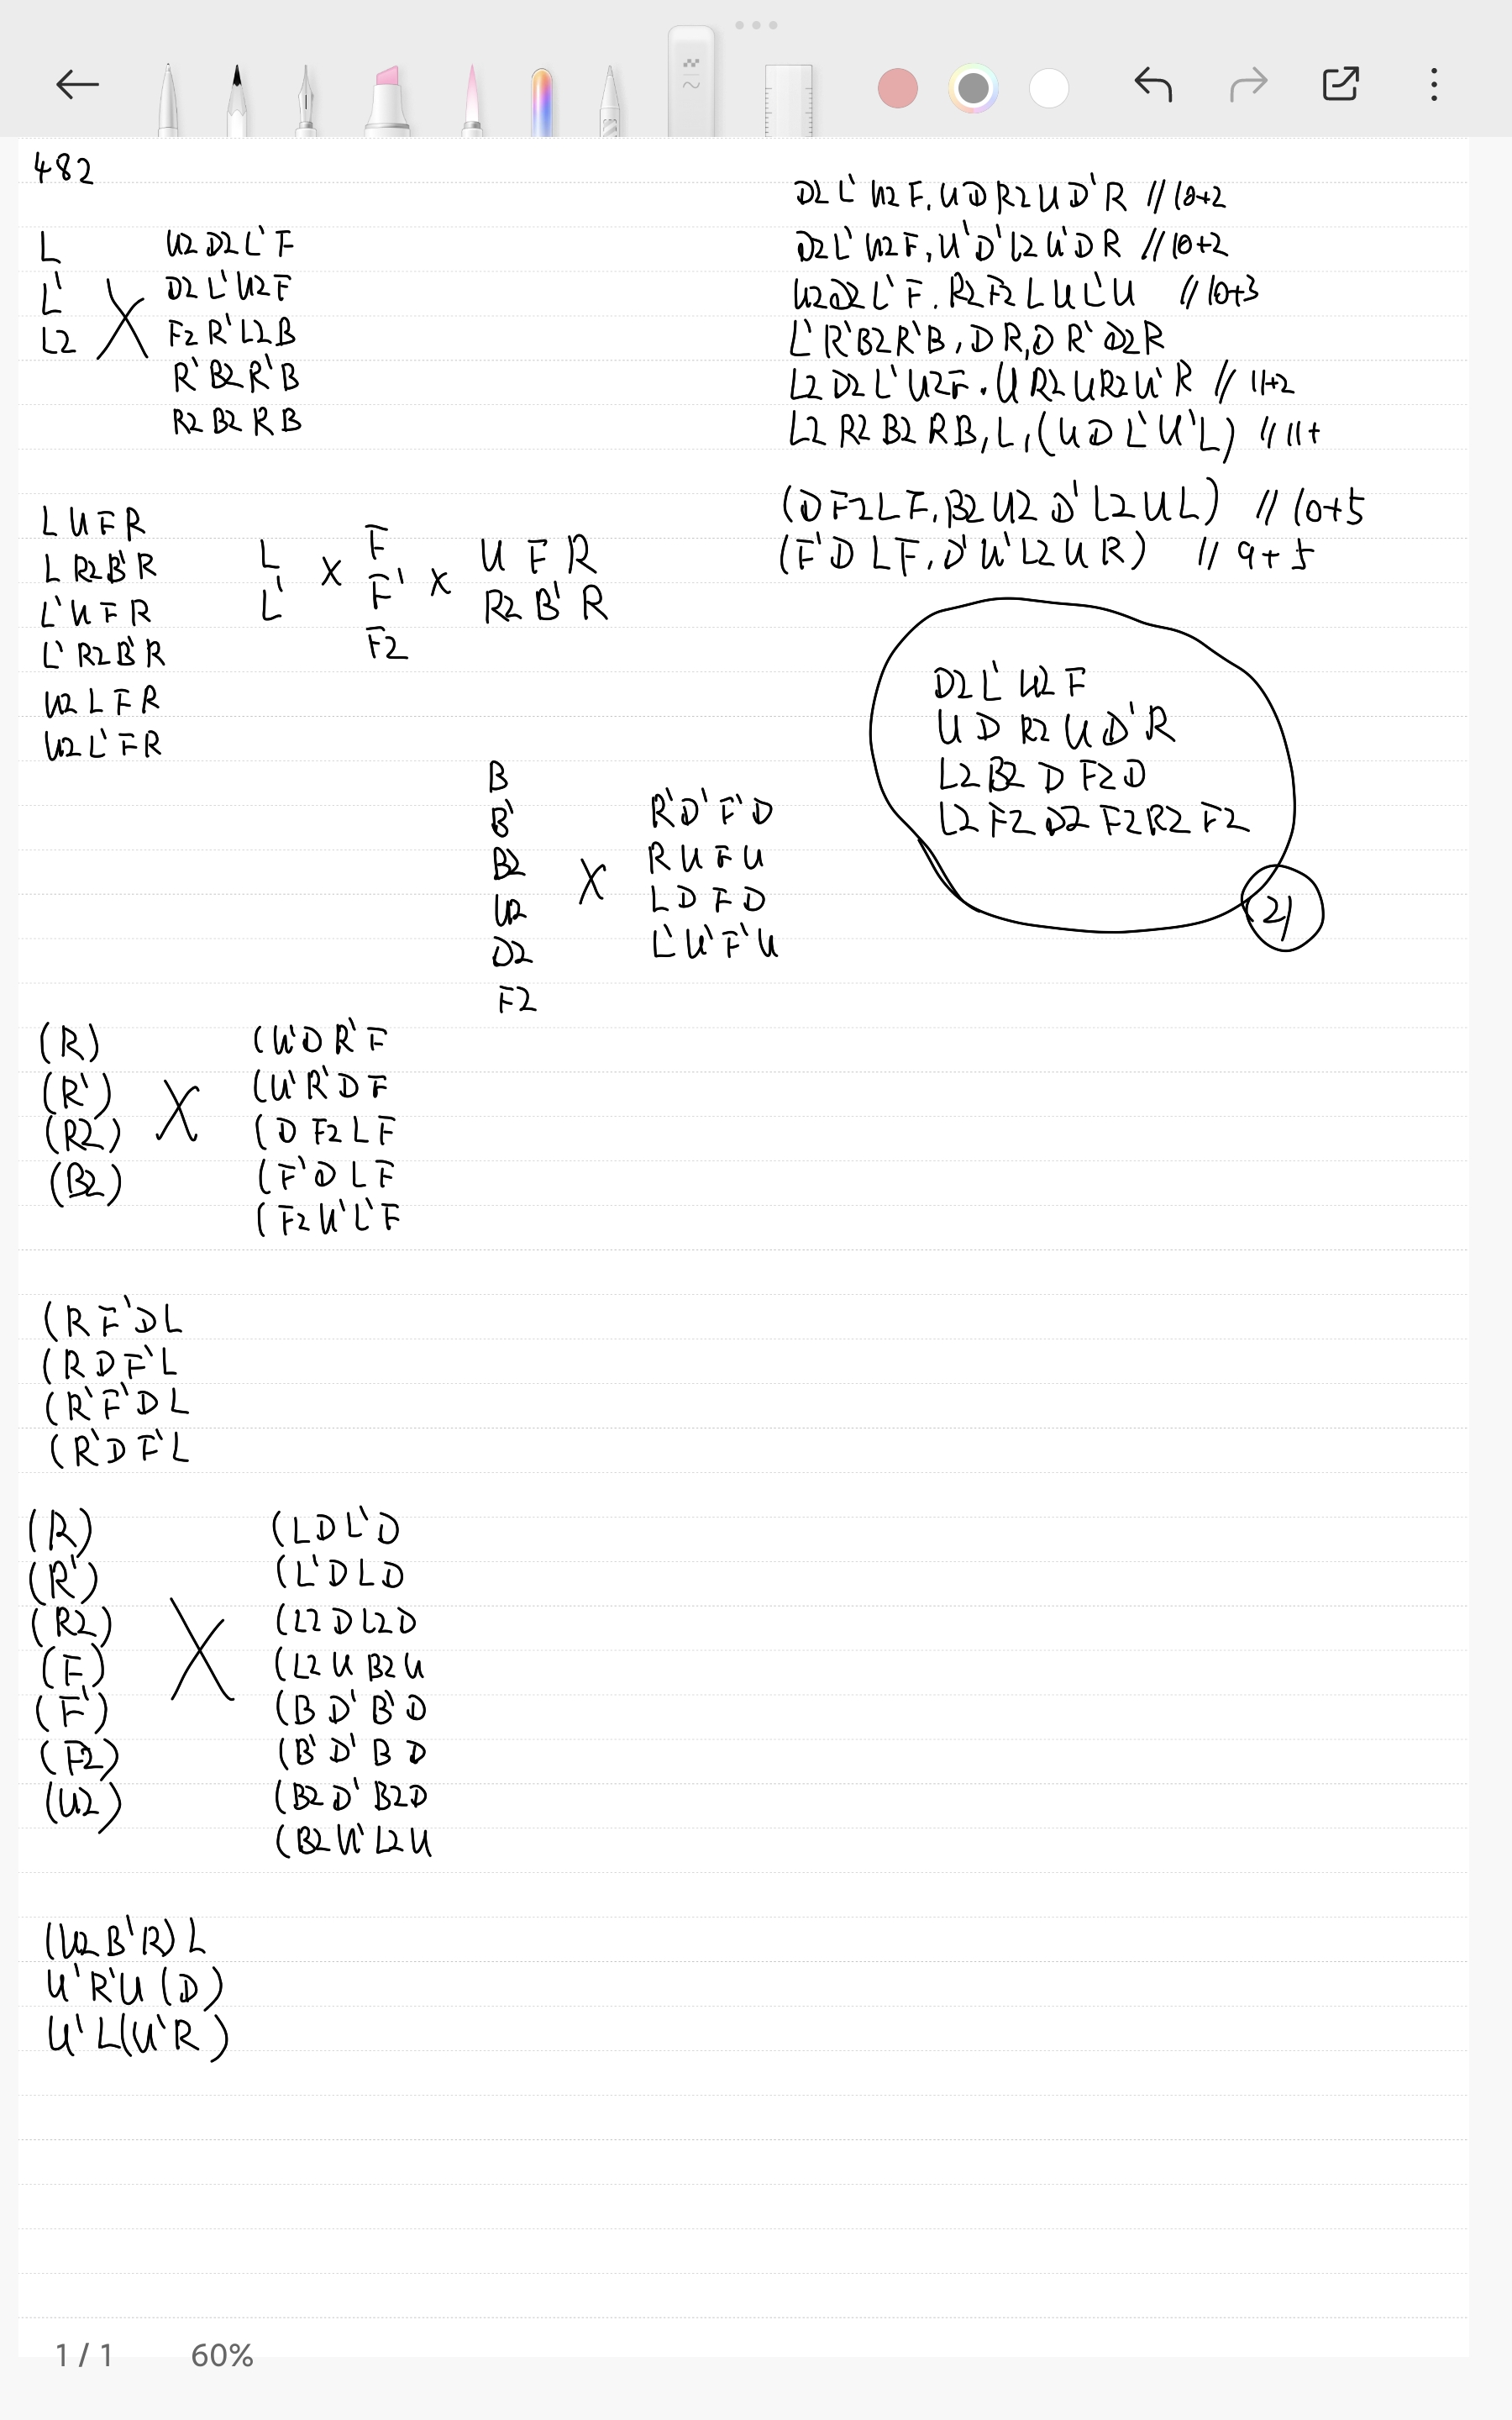 482
L
L'
L2
X
U2 D2 L' F
D2 L' U2 F
F2 R' L2 B
R' B2 R' B
R2 B2 R B
D2 L' U2 F, U D R2 U D' R // 10+2
D2 L' U2 F, U' D' L2 U' D R // 10+2
U2 D2 L' F. R2 F2 L U L' U // 10+3
L' R' B2 R' B, D R, D R' D2 R
L2 D2 L' U2 F. U R2 U R2 U' R // 11+2
L2 R2 B2 R B, L, (U D L' U' L) // 11+
(D F2 L F, B2 U2 D' L2 U L) // 10+5
(F' D L F, D' U' L2 U R) // 9+5
L U F R
L R2 B' R
L' U F R
L' R2 B' R
U2 L F R
U2 L' F R
L
L'
X
F
F'
F2
X
U F R
R2 B' R
D2 L' U2 F
U D R2 U D' R
L2 B2 D F2 D
L2 F2 D2 F2 R2 F2
21
B
B'
B2
U2
D2
F2
X
R' D' F' D
R U F U
L D F D
L' U' F' U
(R)
(R')
(R2)
(B2)
X
(U' D R' F
(U' R' D F
(D F2 L F
(F' D L F
(F2 U' L' F
(R F' D L
(R D F' L
(R' F' D L
(R' D F' L
(R)
(R')
(R2)
(F)
(F')
(F2)
(U2)
X
(L D L' D
(L' D L D
(L2 D L2 D
(L2 U B2 U
(B D' B' D
(B' D' B D
(B2 D' B2 D
(B2 U' L2 U
(U2 B' R) L
U' R' U (D)
U' L (U' R)
1 / 1
60%